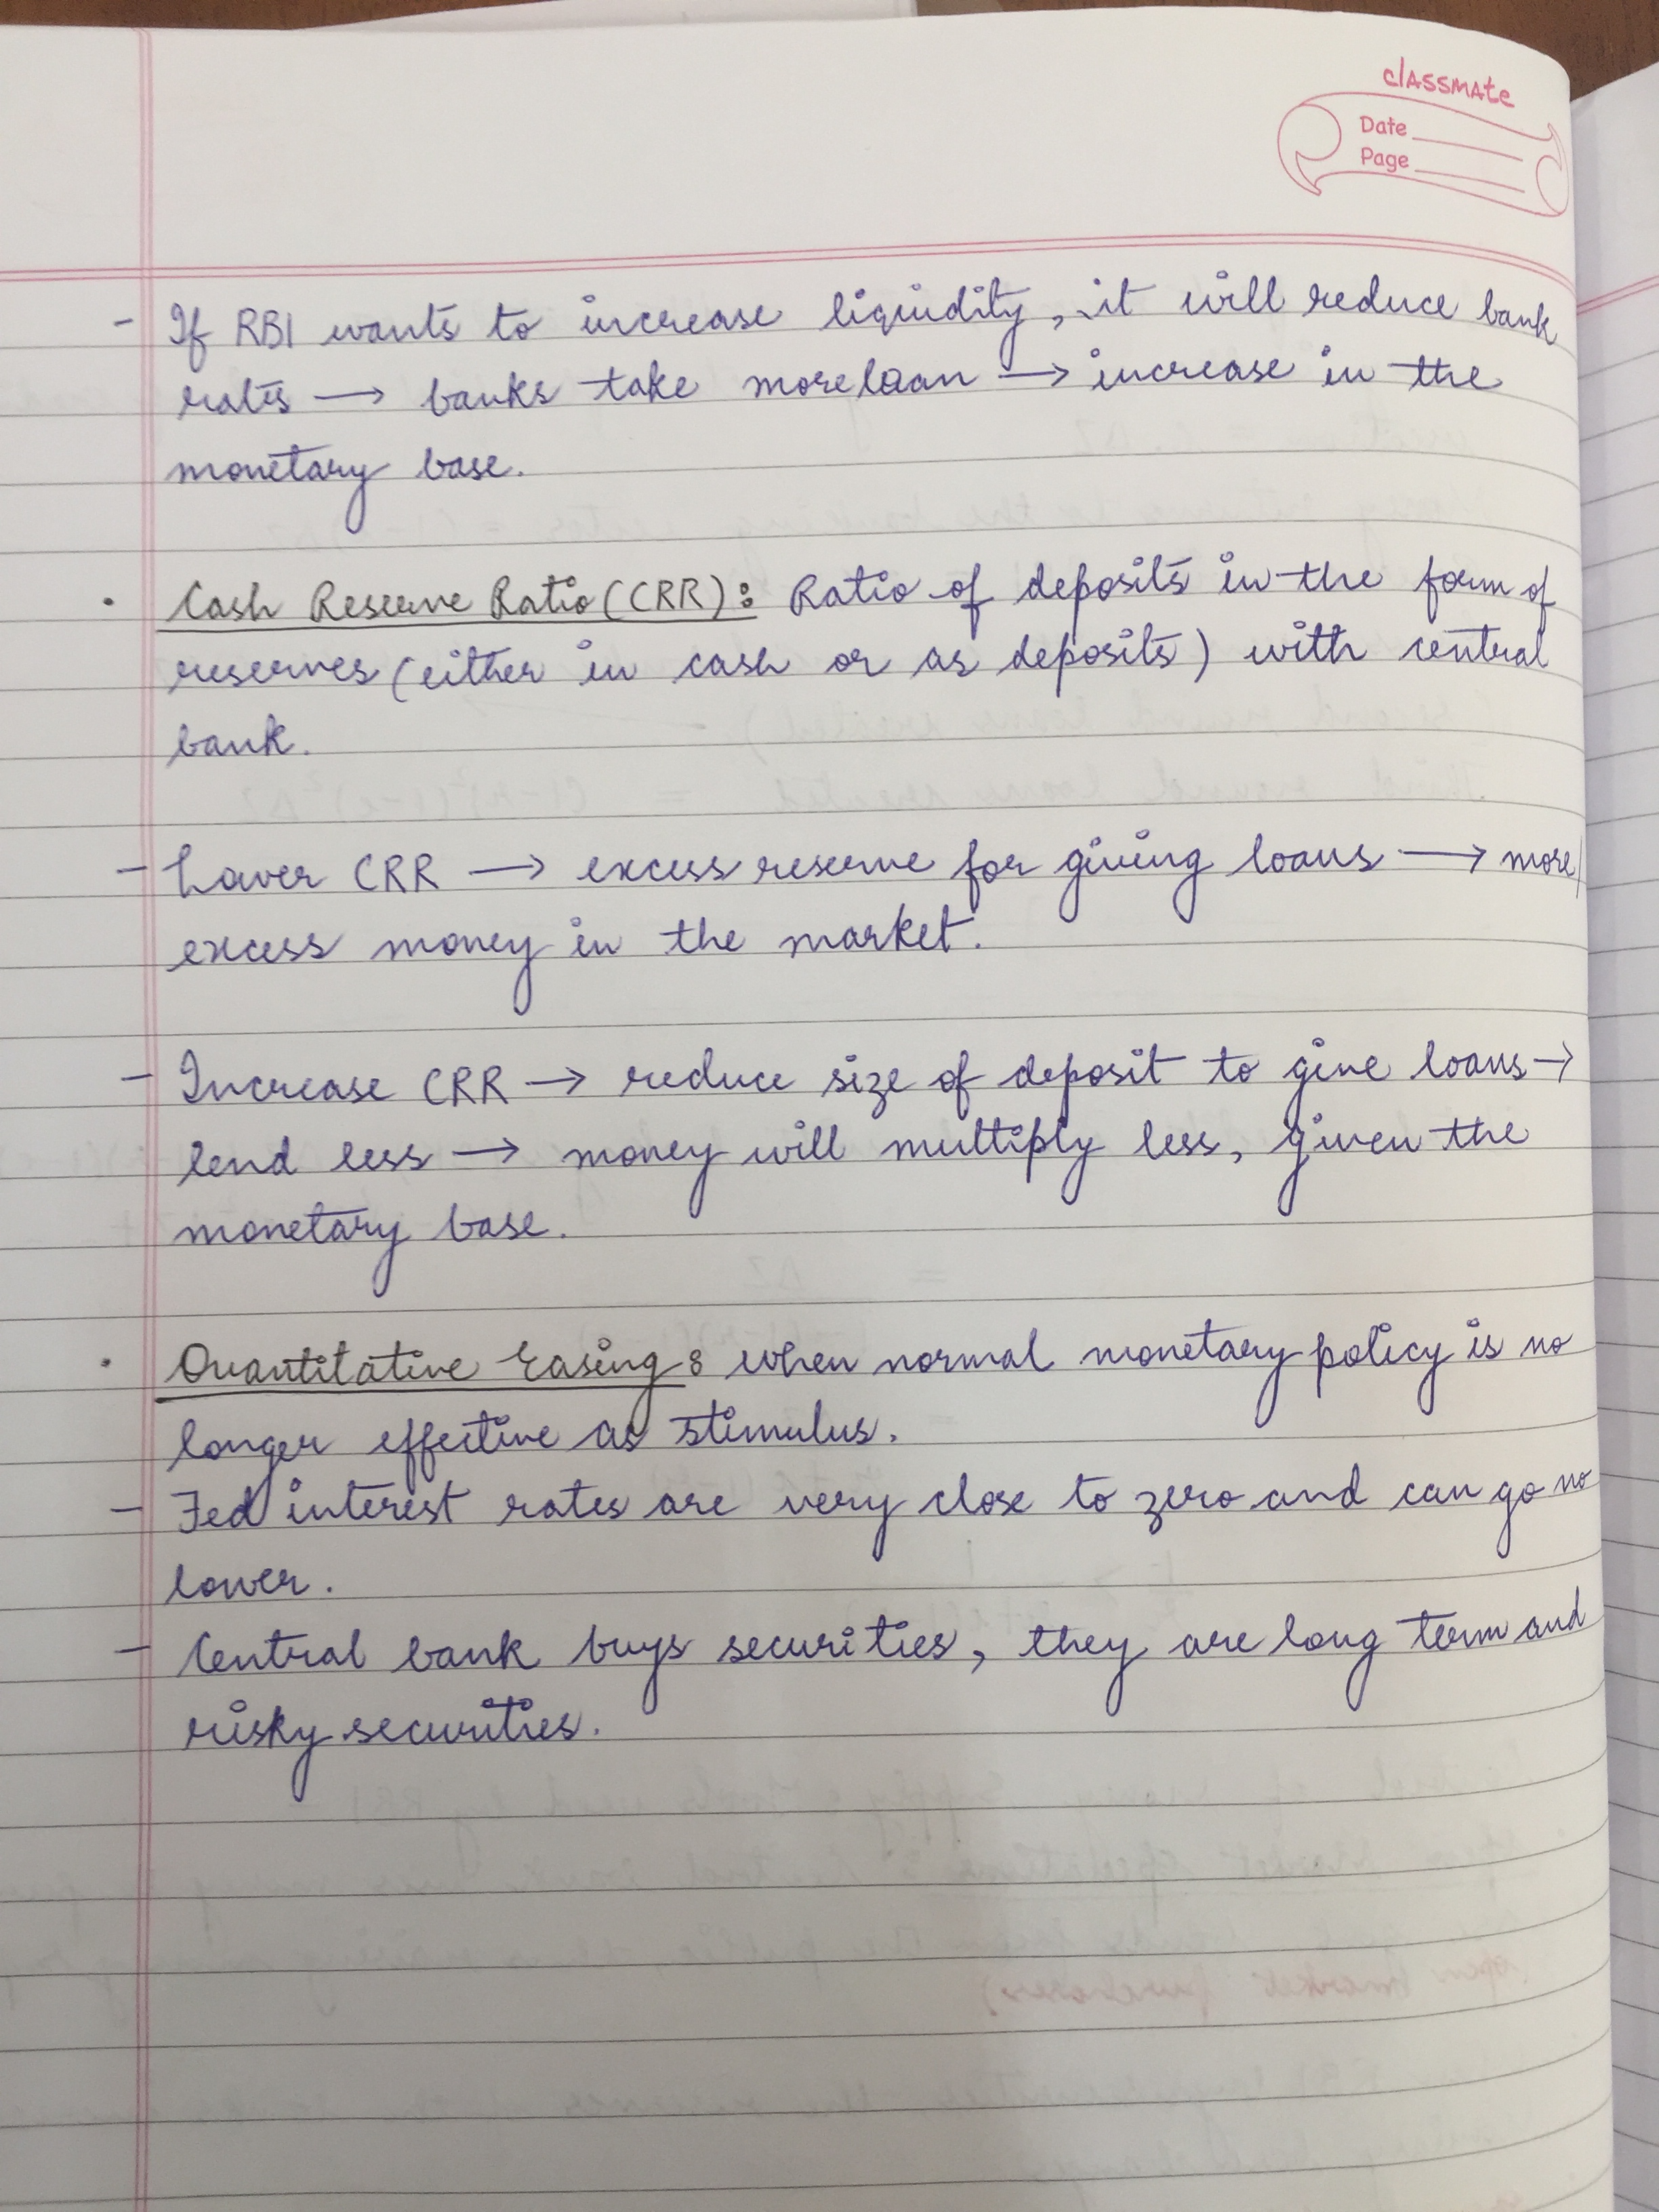 classmate
Date
Page
- If RBI wants to increase liquidity, it will reduce bank
rates → banks take more loan → increase in the
monetary base.
• Cash Reserve Ratio (CRR): Ratio of deposits in the form of
reserves (either in cash or as deposits) with central
bank.
- Lower CRR → excess reserve for giving loans → more/
excess money in the market.
- Increase CRR → reduce size of deposit to give loans →
lend less → money will multiply less, given the
monetary base.
• Quantitative Easing: When normal monetary policy is no
longer effective as stimulus.
- Fed interest rates are very close to zero and can go no
lower.
- Central bank buys securities, they are long term and
risky securities.